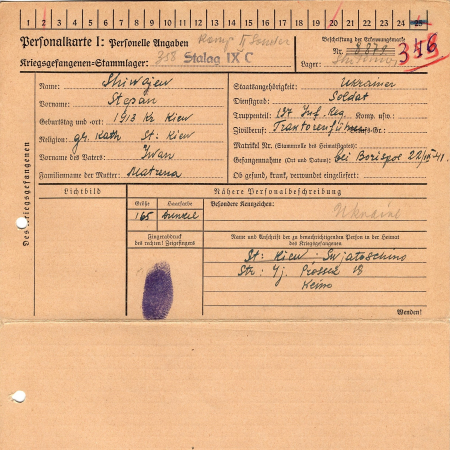 1 2 3 4 5 6 7 8 9 10 11 12 13 14 15 16 17 18 19 20 21 22 23 24 25
Personalkarte I: Personelle Angaben
Beschriftung der Erkennungsmarke
Nr.
Kriegsgefangenen-Stammlager: 358 Stalag IX C
Lager:
Des Kriegsgefangenen
Name: Shiwajew
Vorname: Stepan
Geburtstag und -ort: 1913 Kr Kiew
Religion: gr. Kath St: Kiew
Vorname des Vaters: Iwan
Familienname der Mutter: Matruna
Staatsangehörigkeit: Ukrainer
Dienstgrad: Soldat
Truppenteil: 137 Inf. Reg. Komp. usw.:
Zivilberuf: Traktorenführer
Matrikel Nr. (Stammrolle des Heimatstaates):
Gefangennahme (Ort und Datum): bei Borispol 22/IX 41.
Ob gesund, krank, verwundet eingeliefert:
Lichtbild
Nähere Personalbeschreibung
Größe
Haarfarbe
Besondere Kennzeichen:
165
dunkel
Ukraine
Fingerabdruck
des rechten! Zeigefingers
Name und Anschrift der zu benachrichtigenden Person in der Heimat
des Kriegsgefangenen
St: Kiew: Swjatoschino
Str: